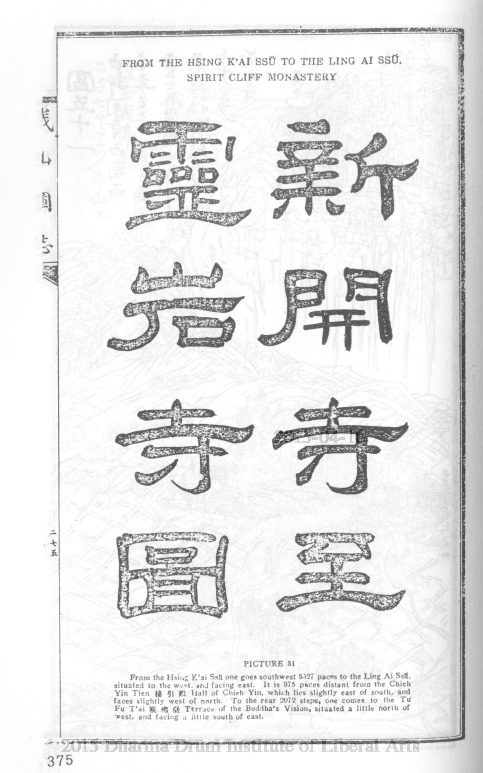 FROM THE HSING K'AI SSŬ TO THE LING AI SSŬ,
SPIRIT CLIFF MONASTERY
新開寺至
靈岩寺圖
峩山圖志
二七五
PICTURE 51
From the Hsing K'ai Ssŭ one goes southwest 5327 paces to the Ling Ai Ssŭ,
situated to the west, and facing east. It is 975 paces distant from the Chieh
Yin Tien 接引殿 Hall of Chieh Yin, which lies slightly east of south, and
faces slightly west of north. To the rear 2072 steps, one comes to the Tu
Fu T'ai Terrace of the Buddha's Vision, situated a little north of
west, and facing a little south of east.
2015 Dharma Drum Institute of Liberal Arts
375